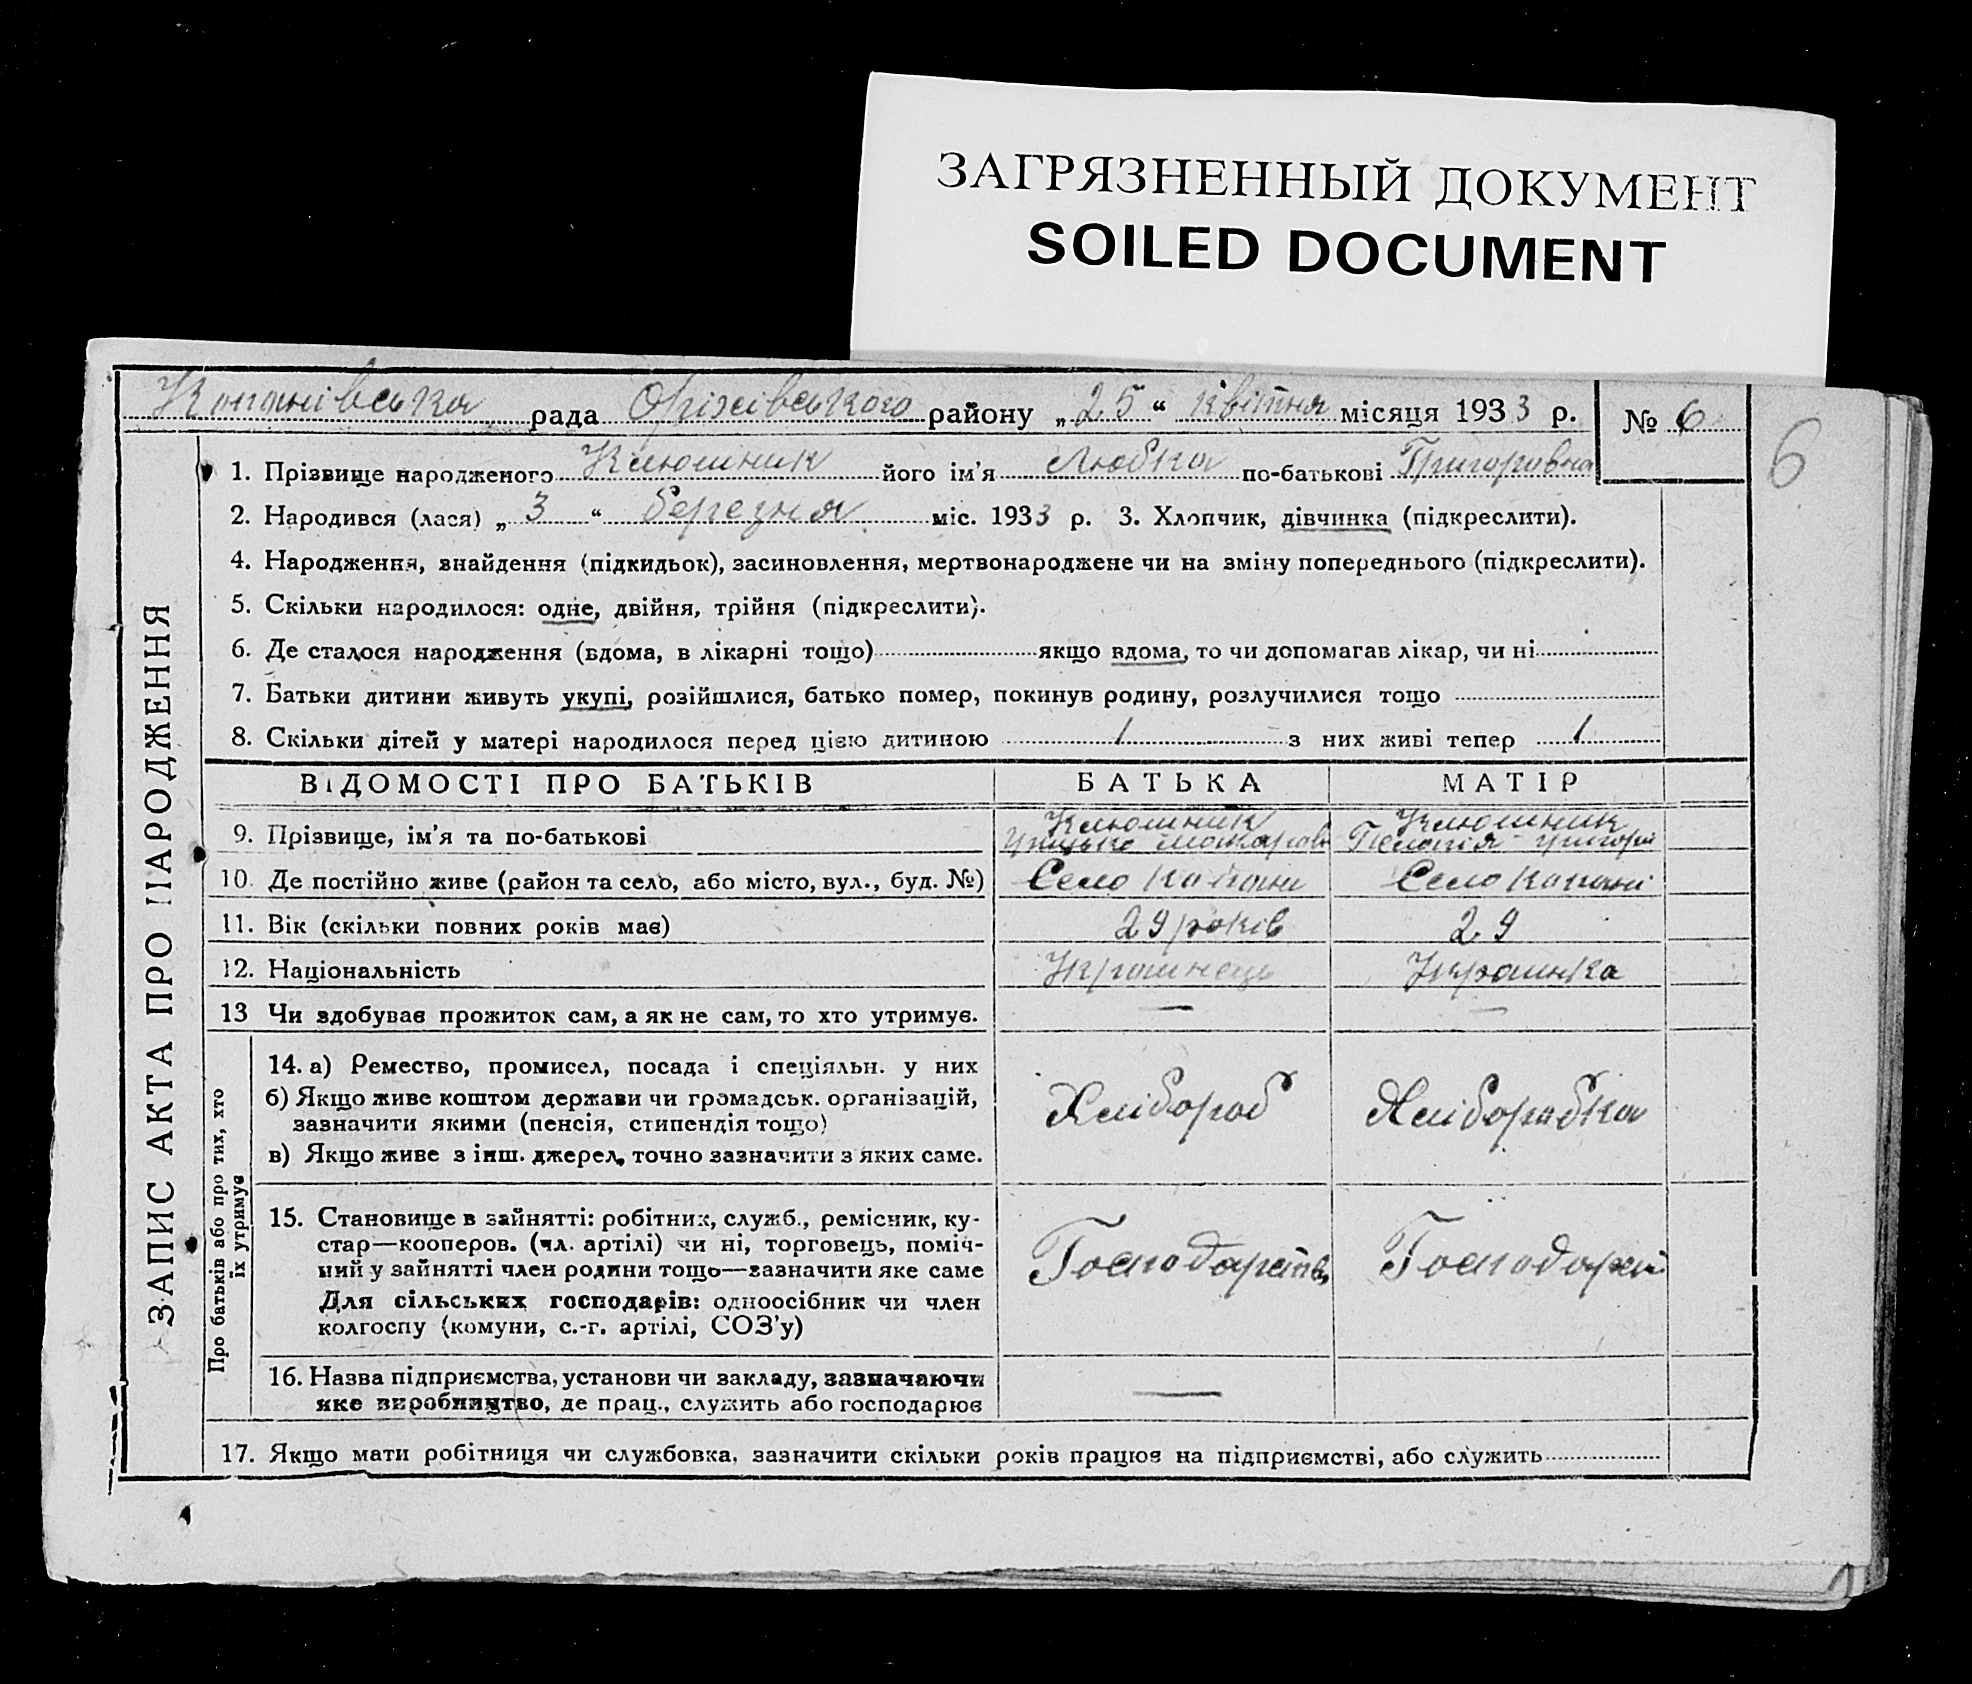 ЗАГРЯЗНЕННЫЙ ДОКУМЕНТ
SOILED DOCUMENT
Копанівська рада Оріхівського району „25“ квітня місяця 1933 р. № 6
6
1. Прізвище народженого Клюшник його ім'я Любка по-батькові Григоровна
2. Народився (лася) „3“ березня міс. 1933 р. 3. Хлопчик, дівчинка (підкреслити).
4. Народження, знайдення (підкидьок), засиновлення, мертвонароджене чи на зміну попереднього (підкреслити).
5. Скільки народилося: одне, двійня, трійня (підкреслити).
6. Де сталося народження (вдома, в лікарні тощо) якщо вдома, то чи допомагав лікар, чи ні
7. Батьки дитини живуть укупі, розійшлися, батько помер, покинув родину, розлучилися тощо
8. Скільки дітей у матері народилося перед цією дитиною 1 з них живі тепер 1
ЗАПИС АКТА ПРО НАРОДЖЕННЯ
ВІДОМОСТІ ПРО БАТЬКІВ БАТЬКА МАТІР
9. Прізвище, ім'я та по-батькові Клюшник Клюшник
Грицько Макаров Пелагія Григорі
10. Де постійно живе (район та село, або місто, вул., буд. №) Село Копани Село Копані
11. Вік (скільки повних років має) 29 років 29
12. Національність Українець Українка
13 Чи здобував прожиток сам, а як не сам, то хто утримує. — —
Про батьків або про тих, хто
їх утримує
14. а) Ремество, промисел, посада і спеціяльн. у них
б) Якщо живе коштом держави чи громадськ. організацій,
зазначити якими (пенсія, стипендія тощо)
в) Якщо живе з інш. джерел, точно зазначити з яких саме.
Хлібороб Хліборобка
15. Становище в зайнятті: робітник, служб., ремісник, ку-
стар—кооперов. (чл. артілі) чи ні, торговець, поміч-
ний у зайнятті член родини тощо—зазначити яке саме
Для сільських господарів: одноосібник чи член
колгоспу (комуни, с.-г. артілі, СОЗ'у)
16. Назва підприємства, установи чи закладу, зазначаючи
яке виробництво, де прац., служить або господарює —
17. Якщо мати робітниця чи службовка, зазначити скільки років працює на підприємстві, або служить